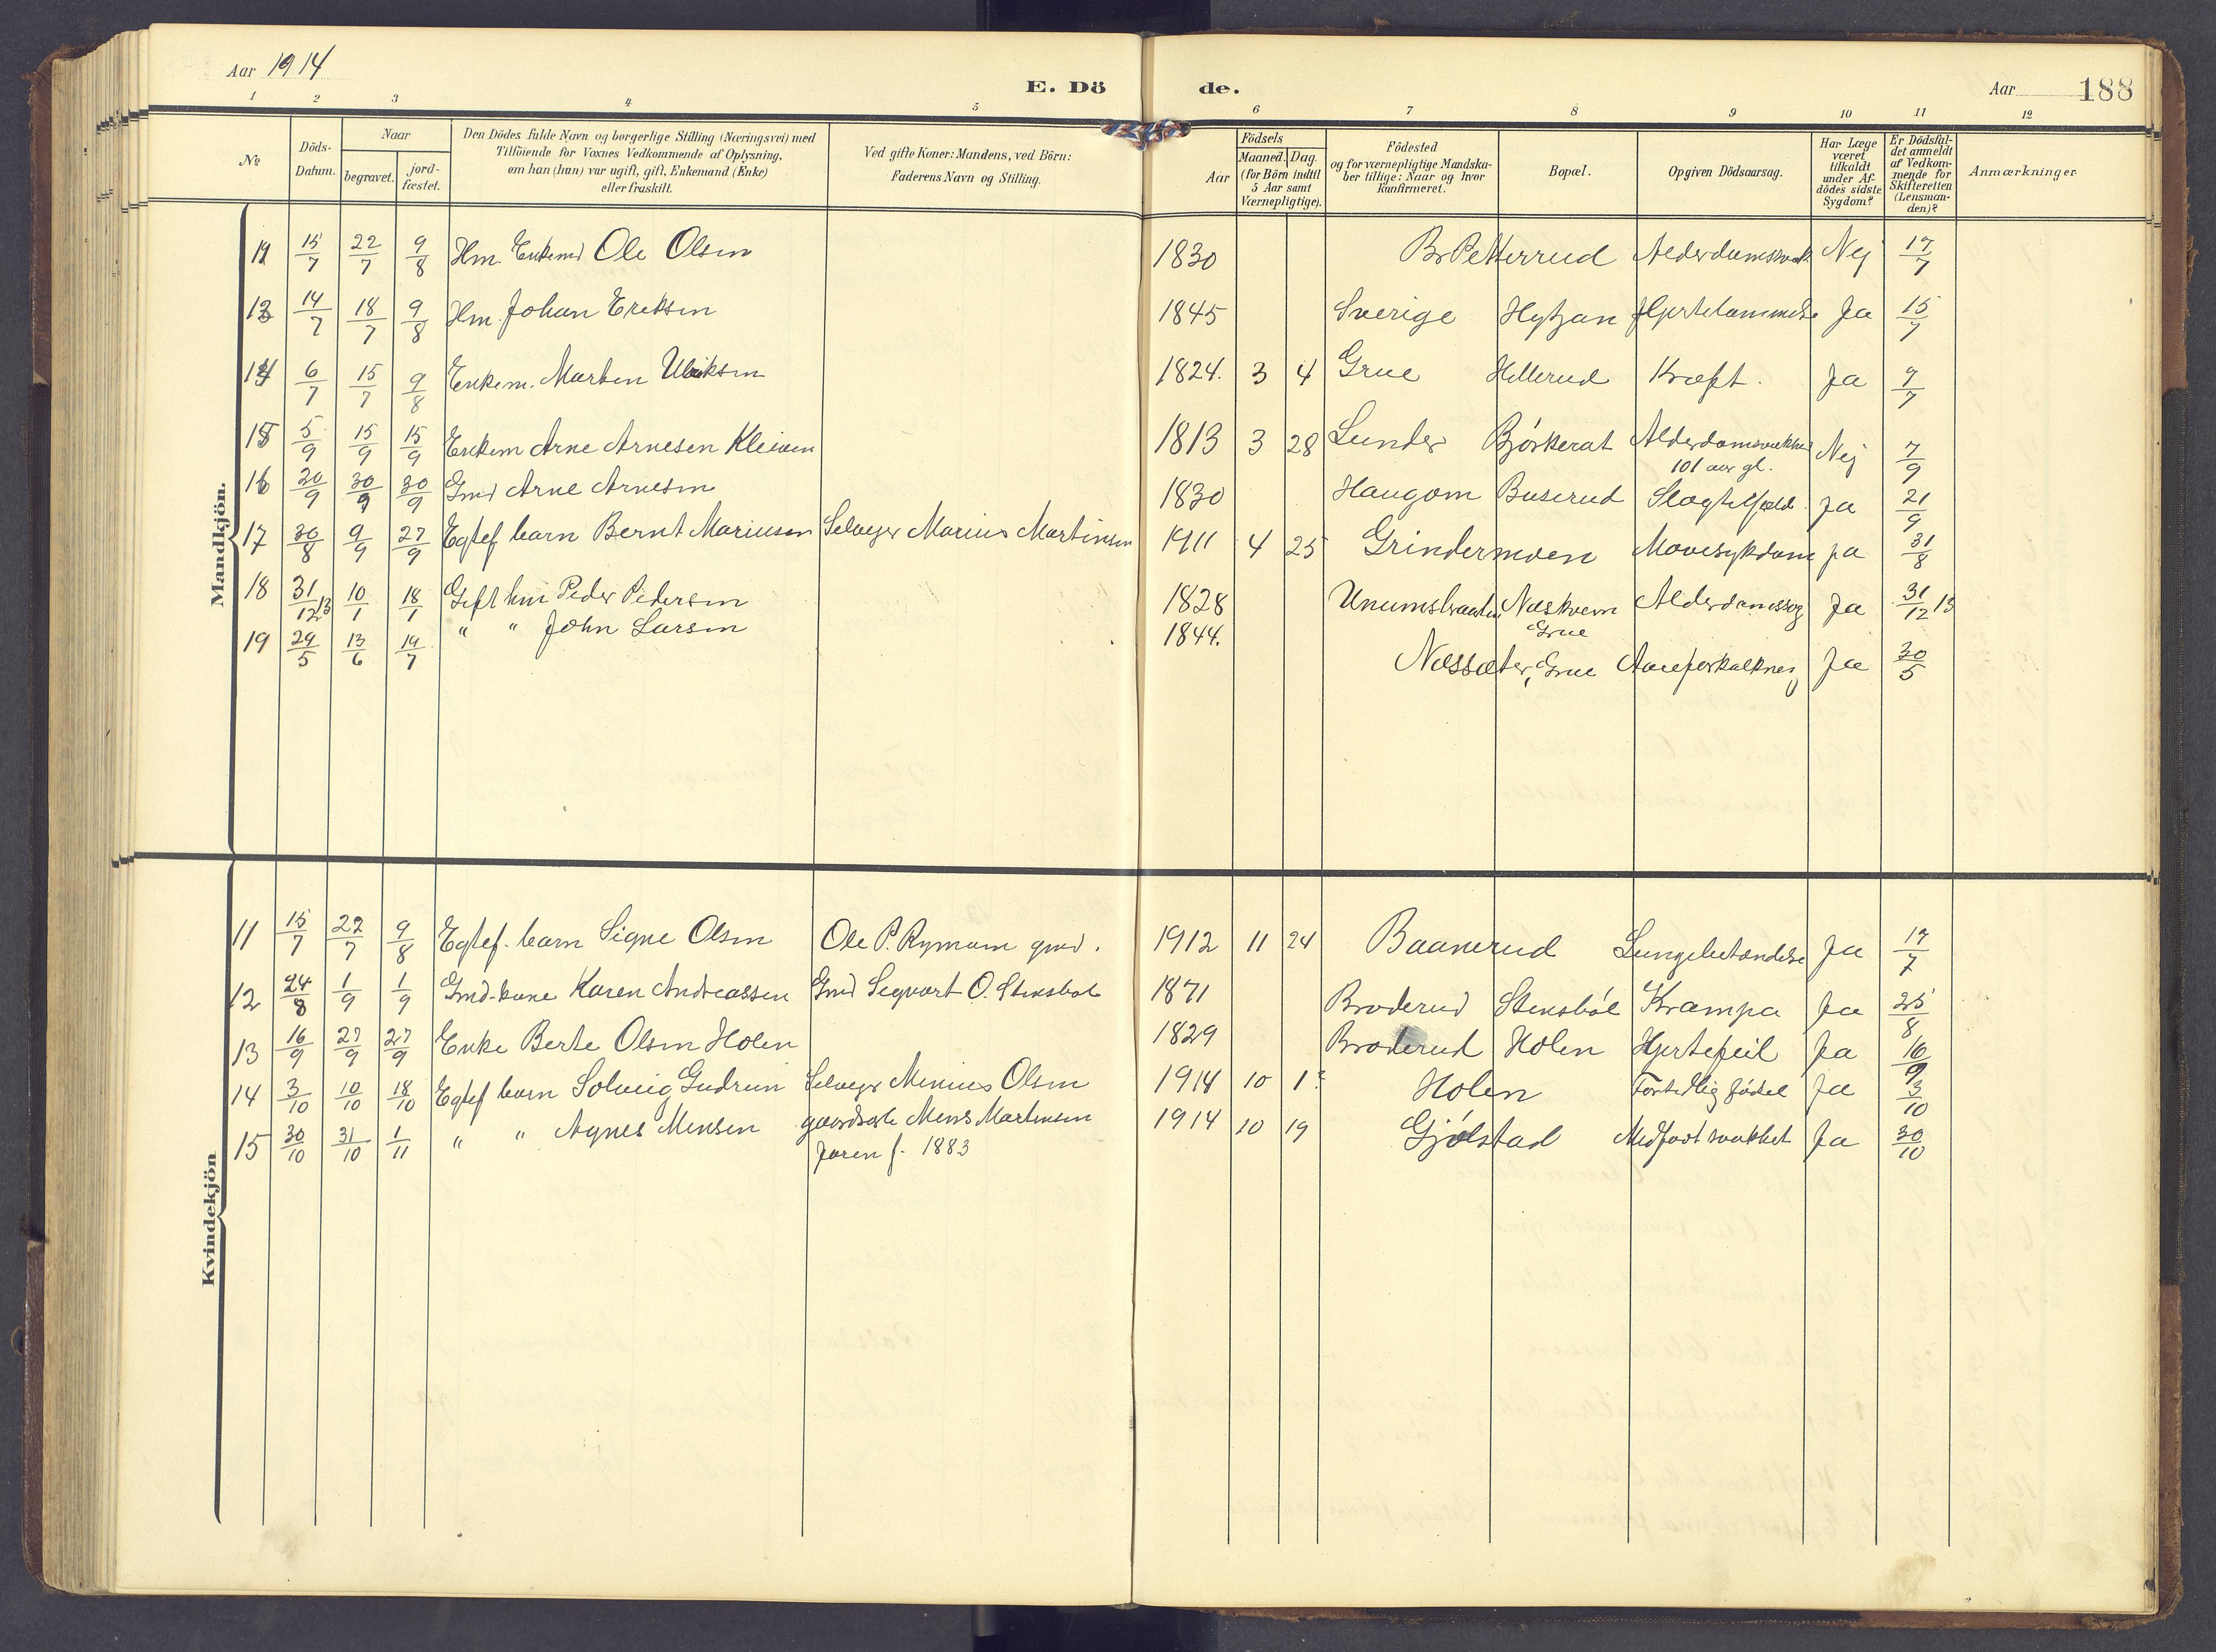 Aar 1914
E. Dö de.
Aar 188
1 2 3 4 5 6 7 8 9 10 11 12
No
Döds-Datum.
Naar
begravet.
jord-fæstet.
Den Dödes fulde Navn og borgerlige Stilling (Næringsvei) med
Tilföiende for Voxnes Vedkommende af Oplysning,
om han (hun) var ugift, gift, Enkemand (Enke)
eller fraskilt.
Ved gifte Koner: Mandens, ved Börn:
Faderens Navn og Stilling.
Födsels
Aar
Maaned. Dag.
(for Börn indtil
5 Aar samt
Værnepligtige).
Födested
og for værnepligtige Mandska-
ber tillige: Naar og hvor
konfirmeret.
Bopæl.
Opgiven Dödsaarsag.
Har Læge
været
tilkaldt
under Af-
dödes sidste
Sygdom?
Er Dödsfal-
det anmeldt
af Vedkom-
mende for
Skifteretten
(Lensman-
den)?
Anmærkninger
Mandkjön.
12 15/7 22/7 9/8 Hm. Enkemd Ole Olsen 1830 Br Petterrud Alderdomssvak Nej 17/7
13 14/7 18/7 9/8 Hm. Johan Eriksen 1845 Sverige Hytjan Hjertelammelse Ja 15/7
14 6/7 15/7 9/8 Enkem. Morten Ulriksen 1824. 3 4 Grue Hillerud Kræft. Ja 9/7
15 5/9 15/9 15/9 Enkem Arne Arnesen Kleiven 1813 3 28 Lunder Björkerat Alderdomssvakhet Nej 7/9
101 aar gl.
16 20/9 30/9 30/9 Gmd Arne Arnesen 1830 Haugom Buserud Slagtilfælde Ja 21/9
17 30/8 9/9 27/9 Egtef barn Bernt Mariusen Selveger Marius Martinsen 1911 4 25 Grindermoen Mavesykdom ja 31/8
18 31/12 13 10/1 18/1 Gift hm Peder Pedersen 1828 Næskvern Ja 31/12 13
Grue
19 29/5 13/6 19/7 " " John Larsen 1844. Næssæter, Grue Aareforkalkning Ja 30/5
Kvindekjön
11 15/7 22/7 9/8 Egtef. barn Signe Olsen Ole P. Rymoen gmd. 1912 11 24 Baanerud Lungebetændelse Ja 17/7
12 24/8 1/9 1/9 Gmd-kone Karen Andreassen Gmd Segvart O. Stensbøl 1871 Broderud Stensböl Krampa Ja 25/8
13 16/9 27/9 27/9 Enke Berte Olsen Holen 1829 Broderud Holen Hjertefeil Ja 16/9
14 3/10 10/10 18/10 Egtef barn Solveig Gudrun Selveger Menius Olsen 1914 10 1? Holen Fortidlig födsel Ja 3/10
15 30/10 31/10 1/11 " " Agnes Mensen Mens Martinsen 1914 10 19 Gjölstad Medfødt svakhet Ja 30/10
Jaren f. 1883